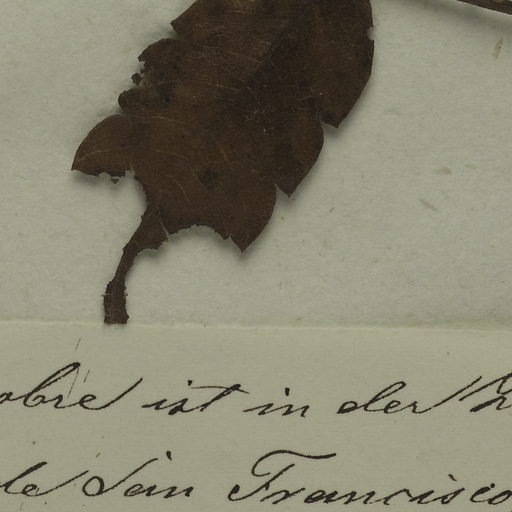 obre ist in der
de San Francisco